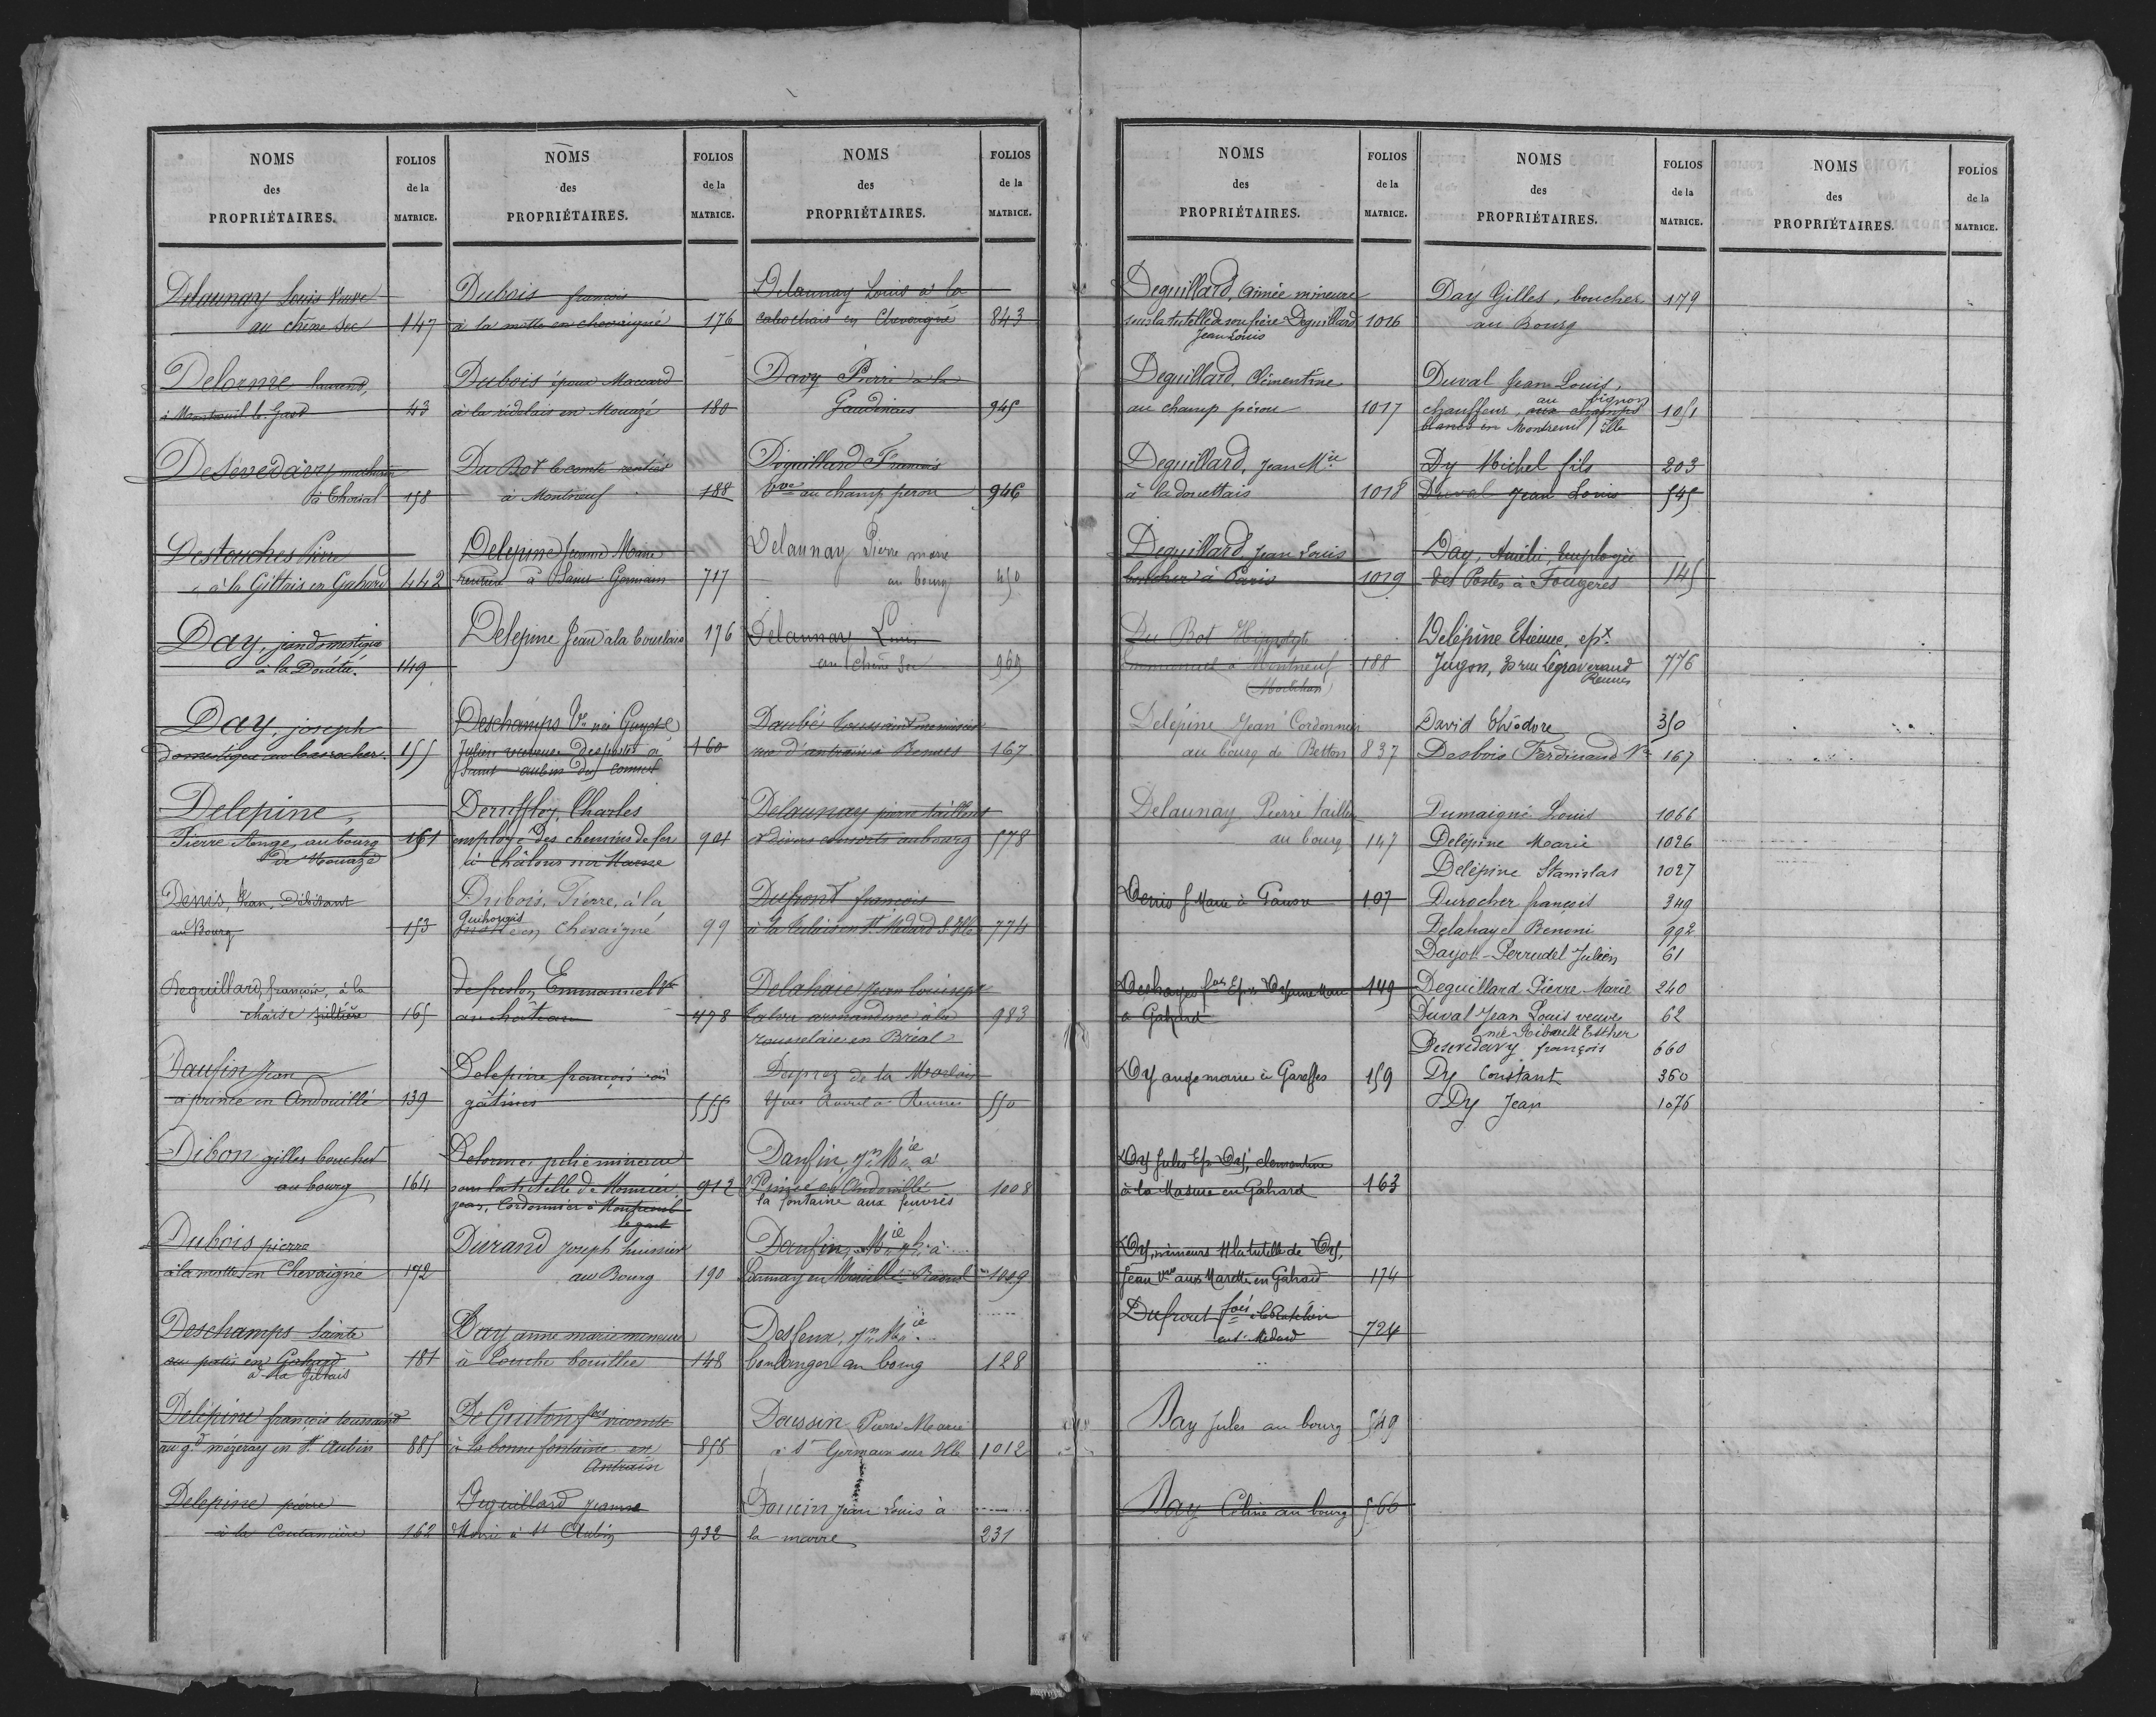 NOMS
des
PROPRIÉTAIRES.
FOLIOS
de la
MATRICE.
Delaunay Louis Veuve
au chêne sec 147
Delorme laurent,
à Montreuil le Gast 43
Desévedavy mathurin
à Thorial 158
Destouches Pierre
à la Giltais en Gahard 442
Day, jean domestique
à la Donété. 149
Day, joseph
domestique au bas rocher. 155
Delepine,
Pierre Ange, au bourg 161
de Mouazé
Denis, Jean, Débitant
au Bourg 153
Deguillard, françois, à la
chaise 165
Daufin Jean
à prince en Andouillé 139
Dibon gilles boucher
au bourg 164
Dubois pierre
à la motte en Chevaigné 172
Deschamps Sainte
au palis en Gahard 181
à la Giltais
Delépine françois toussaint
au gd mézeray en St. Aubin 885
Delepine pierre
à la Coutancière 162
NOMS
des
PROPRIÉTAIRES.
FOLIOS
de la
MATRICE.
Dubois françois
à la motte en chevaigné 176
Dubois époux Maccard
à la ridelais en Mouazé 180
Du Bot le comte rentier
à Montneuf 188
Delepine Jeanne Marie
rentière à Saint Germain 717
Delepine Jean à la boulais 176
Deschamps Ve née Guyot
Julien receveur des postes à 160
Saint aubin du cormier
Deruffley, Charles
employé des chemins de fer 904
à Châlons sur Marne
Dubois, Pierre, à la
Guihorgais
motte en Chevaigné 99
de freslon, Emmanuel Vte
au château 478
Delepine françois à
gâtines 555
Delorme, julie mineure
sous la tutelle de Monnier 912
jean, Cordonnier à Montreuil
le gast
Durand joseph huissier
au Bourg 190
Day anne marie mineure
à Touche bouillie 148
De Guiton fois vicomte
à la bonne fontaine en 856
Antrain
Deguillard jeanne
Marie à St Aubin 932
NOMS
des
PROPRIÉTAIRES.
FOLIOS
de la
MATRICE.
Delaunay Louis à la
cabochais en Chevaigné 843
Davy Pierre à la
Gaudinais 945
Déguillard François
Vve au champ perou 946
Delaunay Pierre marie
au bourg 450
Delaunay Louis
au chêne sec 969
Daubé toussaint menuisier
rue d'antrain à Rennes 167
Delaunay pierre tailleur
& divers consorts au bourg 578
Dufront françois
à la en St. Médard S. Ille 774
Delahaie jean louis epx
armandine à la 983
rousselaie en Bréal
Desprez de la Morlais
Yves Avoué à Rennes 550
Daufin, Jn Mie à
Prince en Andouillé 1008
la fontaine aux feuvres
Daufin, Mie Jh à
Launay en 1009
Desfeux, Jn Mie
boulanger au bourg 128
Doussin Pierre Marie
à St Germain sur Ille 1012
Doucin Jean Louis à
la marre 231
NOMS
des
PROPRIÉTAIRES.
FOLIOS
de la
MATRICE.
Deguillard, Aimée mineure
sous la tutelle de son frère Deguillard 1016
Jean Louis
Deguillard, Clémentine
au champ pérou 1017
Deguillard, Jean Mie
à la donettais 1018
Deguillard, Jean Louis
boucher à Paris 1019
Du Bot Hippolyte
Emmanuel à Montneuf 188
(Morbihan)
Delépine Jean Cordonnier
au bourg de Betton 837
Delaunay Pierre tailleur
au bourg 147
Denis J. Marie à 107
Deshayes fois Epx Delepine Marie 149
à Gahard
Dy ange marie à Garesses 159
Dy Jules Epx Dy, clementine
à la Masure en Gahard 163
Dy, mineurs s/ la tutelle de Dy,
Jean Vve aux Marette en Gahard 174
Dufrout fois
en St Medard 724
Day Jules au bourg 549
Day Celine au bourg 566
NOMS
des
PROPRIÉTAIRES.
FOLIOS
de la
MATRICE.
Day Gilles, boucher 179
au Bourg
Duval Jean Louis,
au pignon
chauffeur, aux champs 1051
blancs en Montreuil s/ Ille
Dy Michel fils 203
Duval Jean Louis 545
Day, Amélie, Employée
des Postes à Fougères 145
Delépine Etienne, epx.
Jugon, 30 rue Legraverand 776
Rennes
David Théodore 350
Desbois Ferdinand Ve 167
Dumaigné Louis 1066
Delépine Marie 1026
Delépine Stanislas 1027
Durocher françois 349
Delahaye Benoni 992
Dayot-Perrudel Julien 61
Deguillard Pierre-Marie 240
Duval Jean Louis veuve 62
née Ribault Esther
Desevedavy françois 660
Dy Constant 360
Dy Jean 1076
NOMS
des
PROPRIÉTAIRES.
FOLIOS
de la
MATRICE.